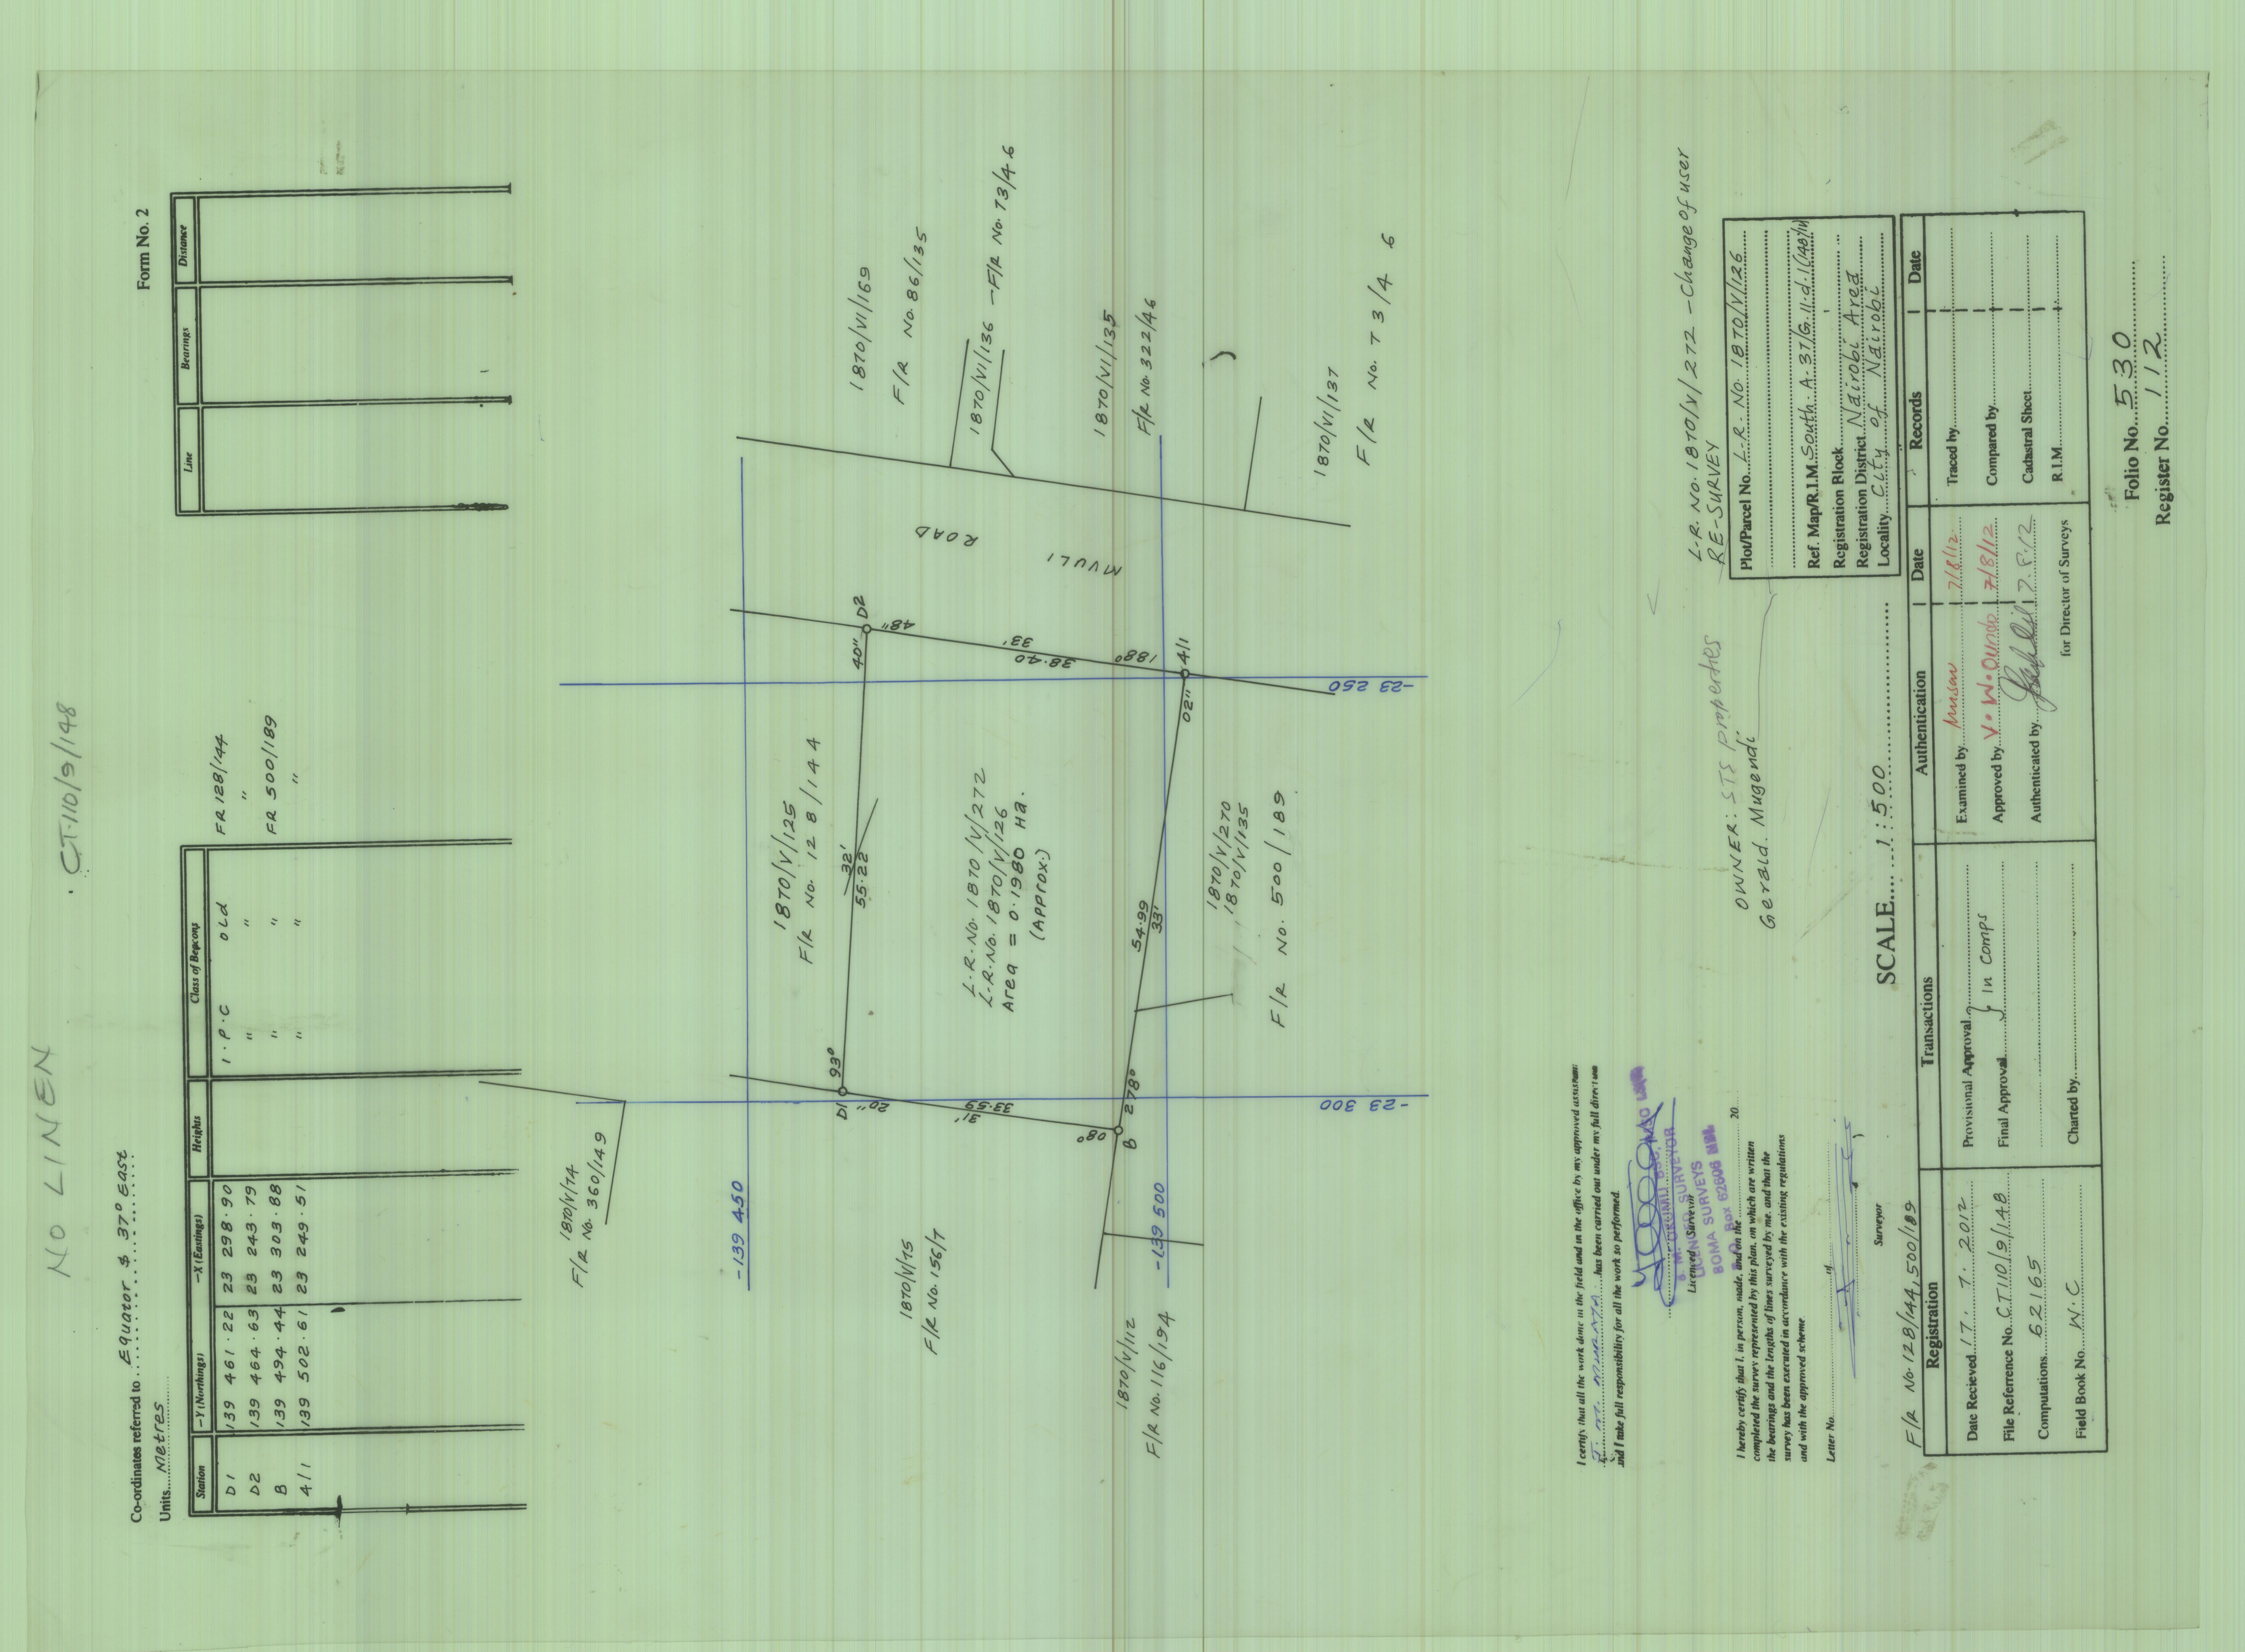 NO LINEN
CT.110/9/148
Form No. 2
Co-ordinates referred to Equator $ 37° East
Units Metres
Station -Y (Northings) -X (Eastings) Heights Class of Beacons
D1 139 461.22 23 298.90 I.P.C Old FR 128/144
D2 139 464.63 23 243.79 " " "
B 139 494.44 23 303.88 " " FR 500/189
4/1 139 502.61 23 249.51 " " "
Line Bearings Distance
1870/V/74
F/R No. 360/149
-139 450
1870/V/125
F/R No. 128/144
1870/VI/169
F/R No. 86/135
D1 93°
32'
55.22
40" D2
20"
31'
33.59
08°
48"
33'
38.40
188°
MVULI ROAD
1870/V/75
F/R No. 156/7
L.R. No. 1870/V/272
L.R. No. 1870/V/126
Area = 0.1980 Ha.
(Approx.)
1870/VI/136 - F/R No. 73/46
1870/VI/135
F/R No. 322/46
B 278°
54.99
33'
02" 4/1
1870/V/112
F/R No. 116/194
-139 500
1870/V/270
1870/V/135
F/R No. 500/189
1870/VI/137
F/R No. 73/46
-23 300
-23 250
I certify that all the work done in the field and in the office by my approved assistant
has been carried out under my full direction
and I take full responsibility for all the work so performed.
Licenced Surveyor
LICENCED SURVEYOR
BOMA SURVEYS
P. O. Box 62606 NRB
I hereby certify that I, in person, made, and on the 20
completed the survey represented by this plan, on which are written
the bearings and the lengths of lines surveyed by me, and that the
survey has been executed in accordance with the existing regulations
and with the approved scheme
Letter No.
Surveyor
OWNER: STS Properties
Gerald. Mugendi
L.R. No. 1870/V/272 - Change of user
RE-SURVEY
Plot/Parcel No. L.R. No. 1870/V/126
Ref. Map/R.I.M. South. A. 37/G.11.d.1
Registration Block
Registration District Nairobi Area
Locality City of Nairobi
SCALE 1:500
F/R No. 128/144, 500/189
Registration Transactions Authentication Date Records Date
Date Recieved 17. 7. 2012
File Referrence No. CT110/9/148
Computations 62165
Field Book No. W.C
Provisional Approval
Final Approval
} In comps
Charted by
Examined by 7/8/12
Approved by V. W. Oundo 7/8/12
Authenticated by 7.8.12
for Director of Surveys
Traced by
Compared by
Cadastral Sheet
R.I.M.
Folio No. 530
Register No. 112